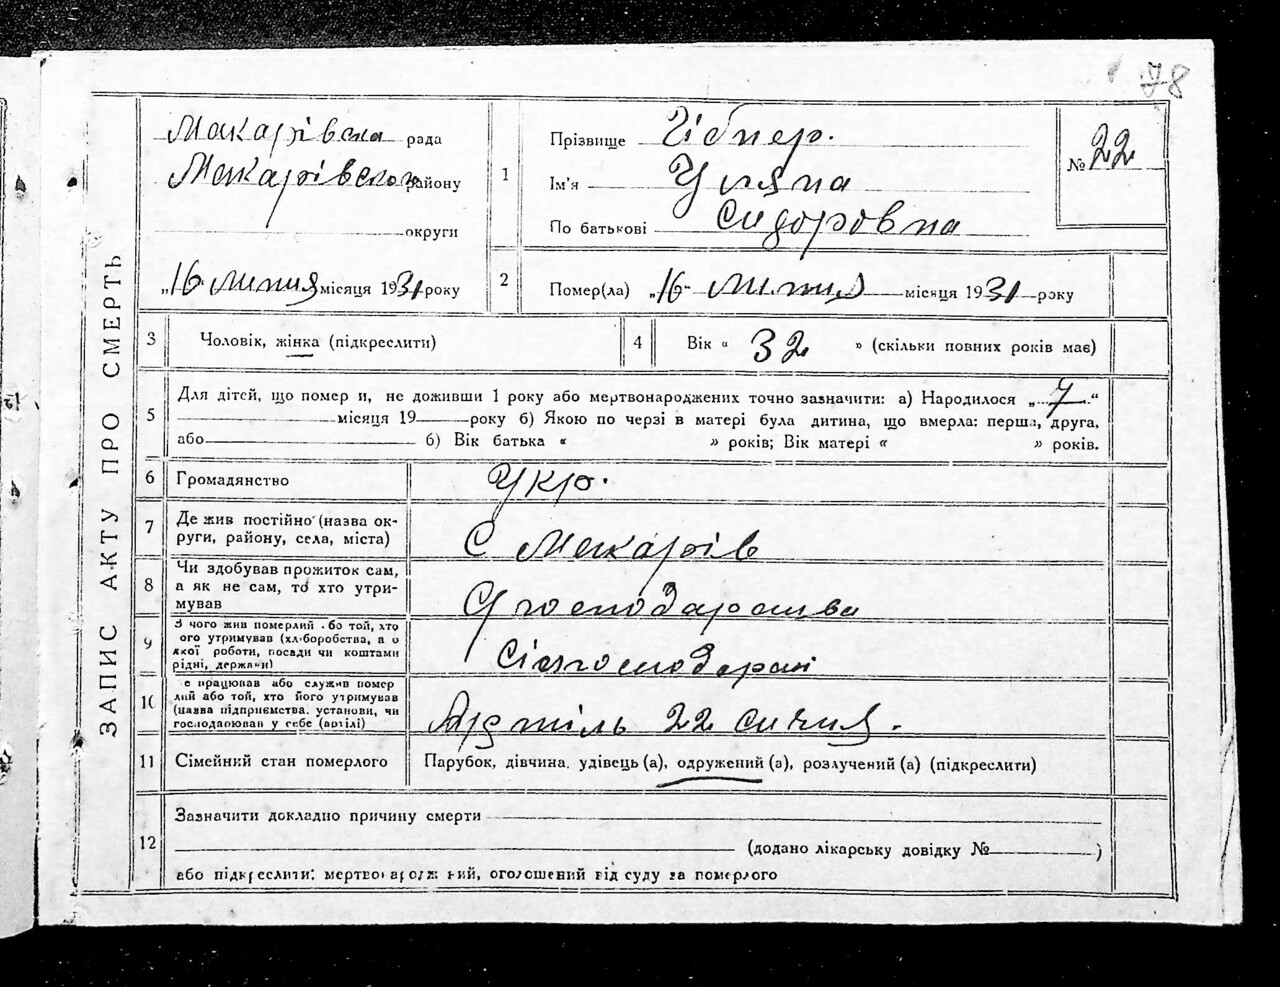 78
Макарівска рада
Макарівског району
округи
„16" липня місяця 1931 року
1
Прізвище Гібнер.
Ім'я Уляна
По батькові Сидоровна
№ 22
2
Помер(ла) „16" липня місяця 1931 року
3
Чоловік, жінка (підкреслити)
4
Вік « 32 » (скільки повних років має)
5
Для дітей, що помер и, не доживши 1 року або мертвонароджених точно зазначити: а) Народилося „ “
місяця 19 року б) Якою по черзі в матері була дитина, що вмерла: перша, друга,
або б) Вік батька « » років; Вік матері « » років.
6
Громадянство
Укр.
7
Де жив постійно (назва ок-
руги, району, села, міста)
С Макарів
8
Чи здобував прожиток сам,
а як не сам, то хто утри-
мував
господарства
9
З чого жив померлий або той, хто
його утримував (хліборобства, а о
якої роботи, посади чи коштами
рідні, держави)
10
е працював або служив помер
лий або той, хто його утримував
(назва підприємства. установи, чи
господарював у себе (артілі)
Артіль 22 січня.
11
Сімейний стан померлого
Парубок, дівчина, удівець (а), одружений (а), розлучений (а) (підкреслити)
12
Зазначити докладно причину смерти
(додано лікарську довідку № )
або підкреслити: мертвонароджений, оголошений від суду за померлого
ЗАПИС АКТУ ПРО СМЕРТЬ